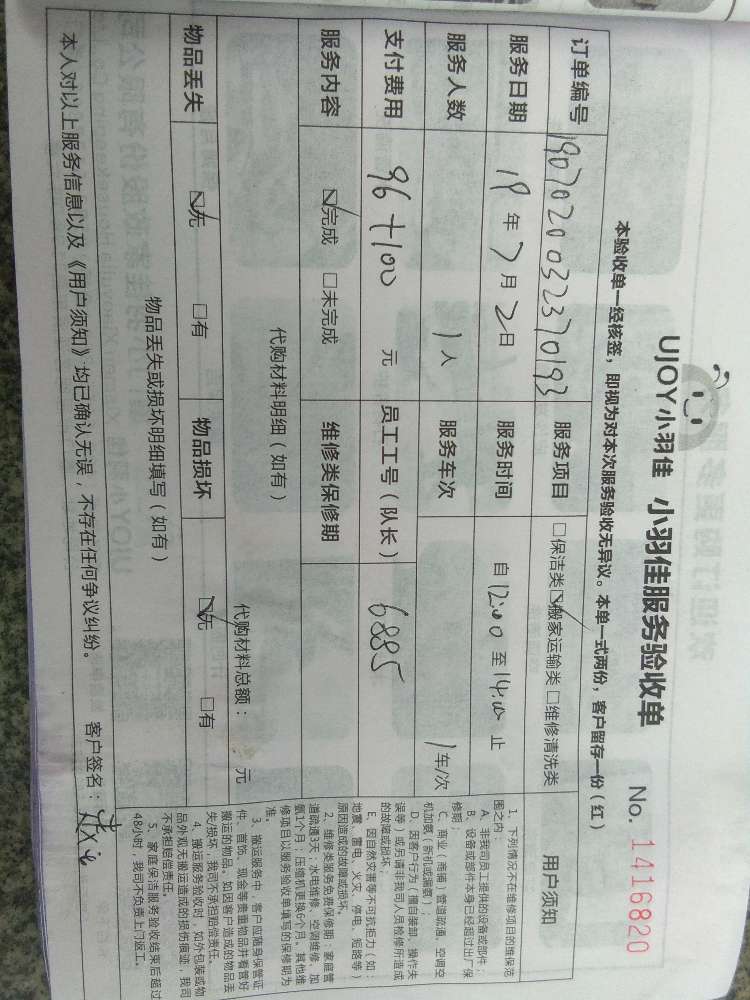 UJOY小羽佳 小羽佳服务验收单 No. 1416820
本验收单一经核签，即视为对本次服务验收无异议。本单一式两份，客户留存一份（红）
订单编号 19070200323270193 服务项目 □保洁类 ☑搬家运输类 □维修清洗类
服务日期 19 年 7 月 2 日 服务时间 自 12:00 至 14:00 止
服务人数 1 人 服务车次 1 车次
支付费用 96+100 元 员工工号（队长） 6885
服务内容 ☑完成 □未完成 维修类保修期
代购材料明细（如有） 代购材料总额： 元
物品丢失 ☑无 □有 物品损坏 ☑无 □有
物品丢失或损坏明细填写（如有）
用户须知
1、下列情况不在维修项目的维保范
围之内：
A、非我司员工提供的设备或部件；
B、设备或部件本身已经超过出厂保
修期；
C、商业（商铺）管道疏通，空调空
机加氨（新机或漏氨）；
D、因客户行为（擅自装卸、操作失
误等）或另请非我司人员检修所造成
的故障或损坏；
E、因自然灾害等不可抗拒力（如：
地震、雷电、火灾、停电、短路等）
原因造成的故障或损坏。
2、维修类服务免费保修期：家庭管
道疏通3天；水电维修、空调维修、加
氨1个月；压缩机更换6个月。其他维
修项目以服务验收单填写的保修期为
准。
3、搬运服务中，客户应随身保管证
件、首饰、现金等贵重物品并看管好
搬运的物品。如因客户造成的物品丢
失/损坏，我司不承担赔偿责任。
4、搬运服务验收时，如外包装或物
品外观无搬运造成的损伤痕迹，我司
不承担赔偿责任。
5、家庭保洁服务验收结束后超过
48小时，我司不负责上门返工。
本人对以上服务信息以及《用户须知》均已确认无误，不存在任何争议纠纷。 客户签名：